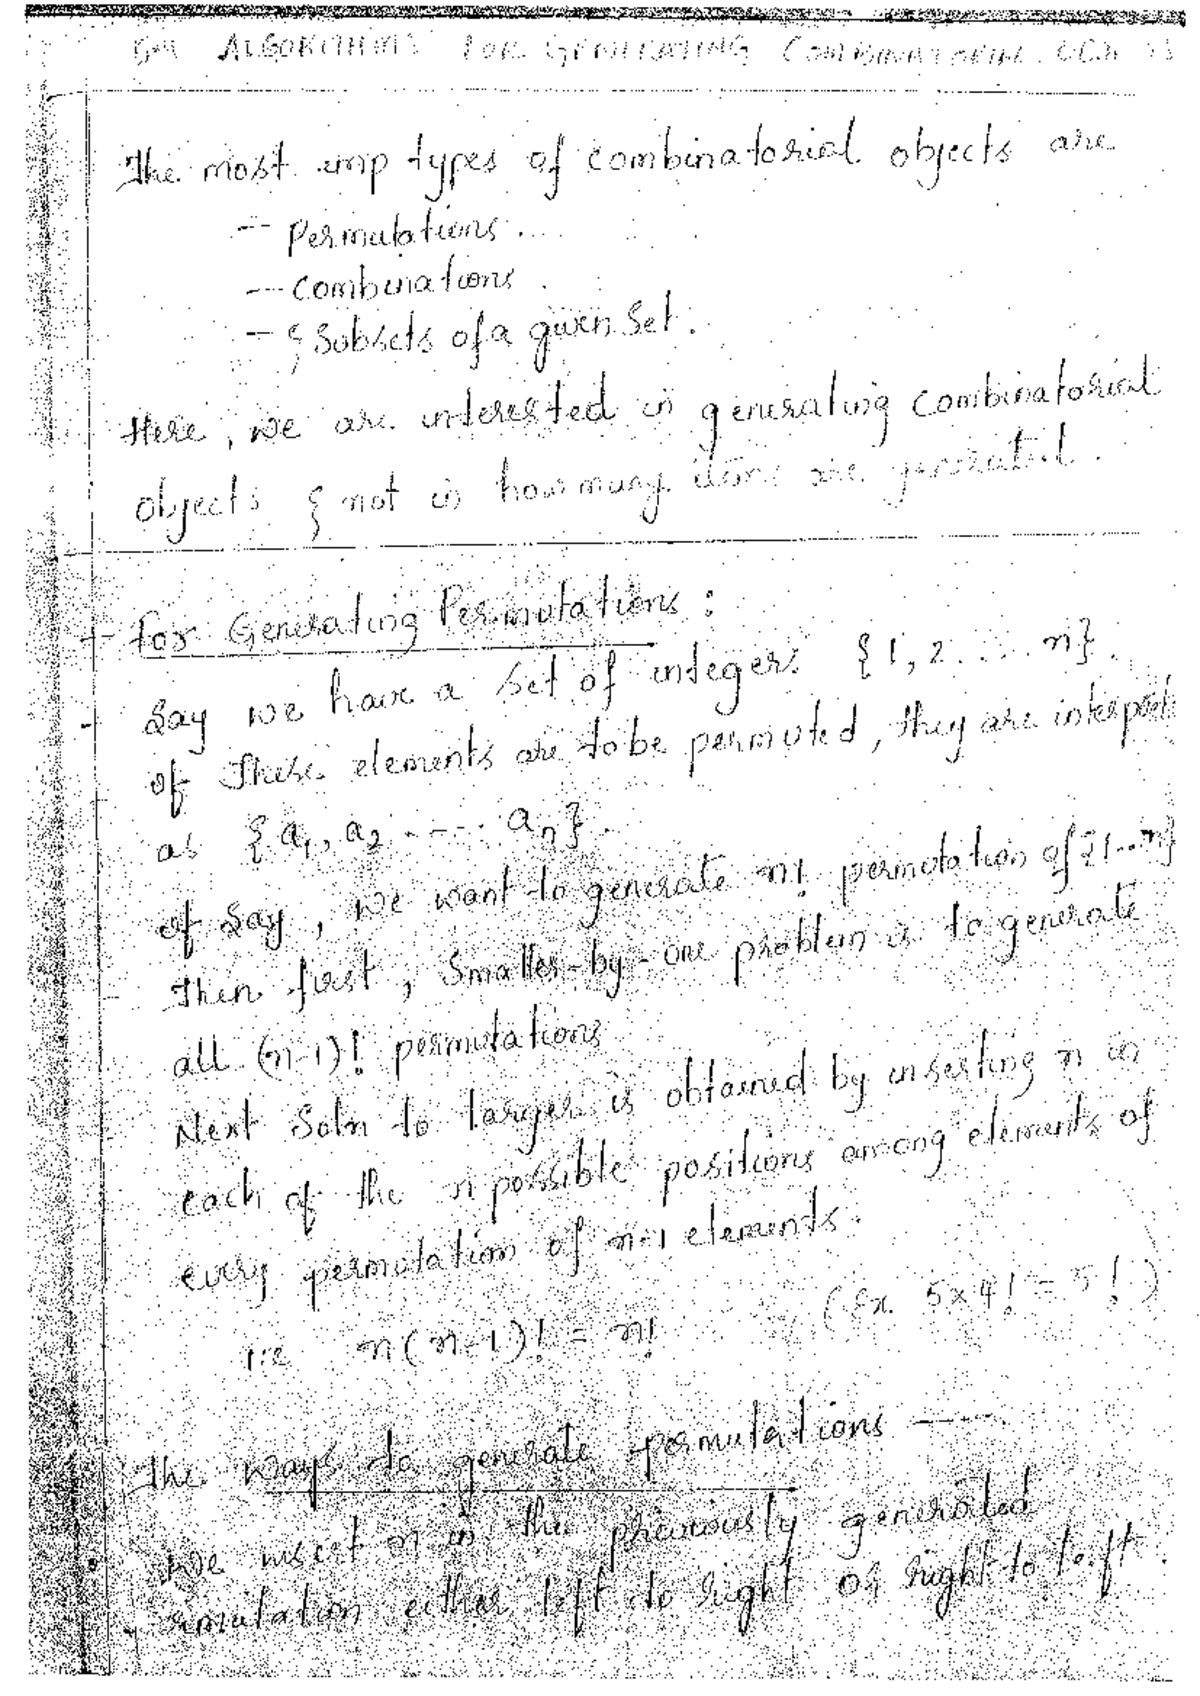 ALGORITHMS FOR GENERATING COMBINATORIAL
The most imp types of combinatorial objects are
-- Permutations.
-- Combinations.
- & Subsets of a given set.
Here, we are interested in generating combinatorial
objects & not in how many items are generated.
+ For Generating Permutations :
- Say we have a set of integers {1, 2 .... n}.
of These elements are to be permuted, they are
as {a1, a2 ---- an}.
of Say, we want to generate n! permutation of {1...n}
Then first, smaller-by-one problem is to generate
all (n-1)! permutations
Next Soln to larger is obtained by inserting n in
each of the n possible positions among elements of
every permutation of n-1 elements.
i.e n(n-1)! = n! (Ex. 5x4! = 5!)
The ways to generate permutations ----
We insert n in the previously generated
either left to right or right to left.